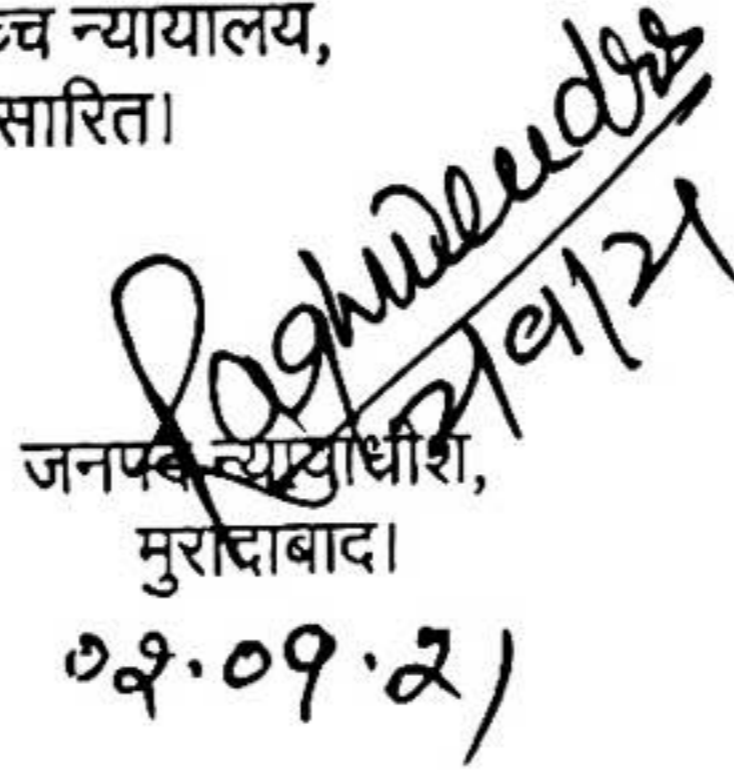 च्च न्यायालय,
सारित।
Raghvendra
जनपद न्यायाधीश,
मुरादाबाद।
02.09.21